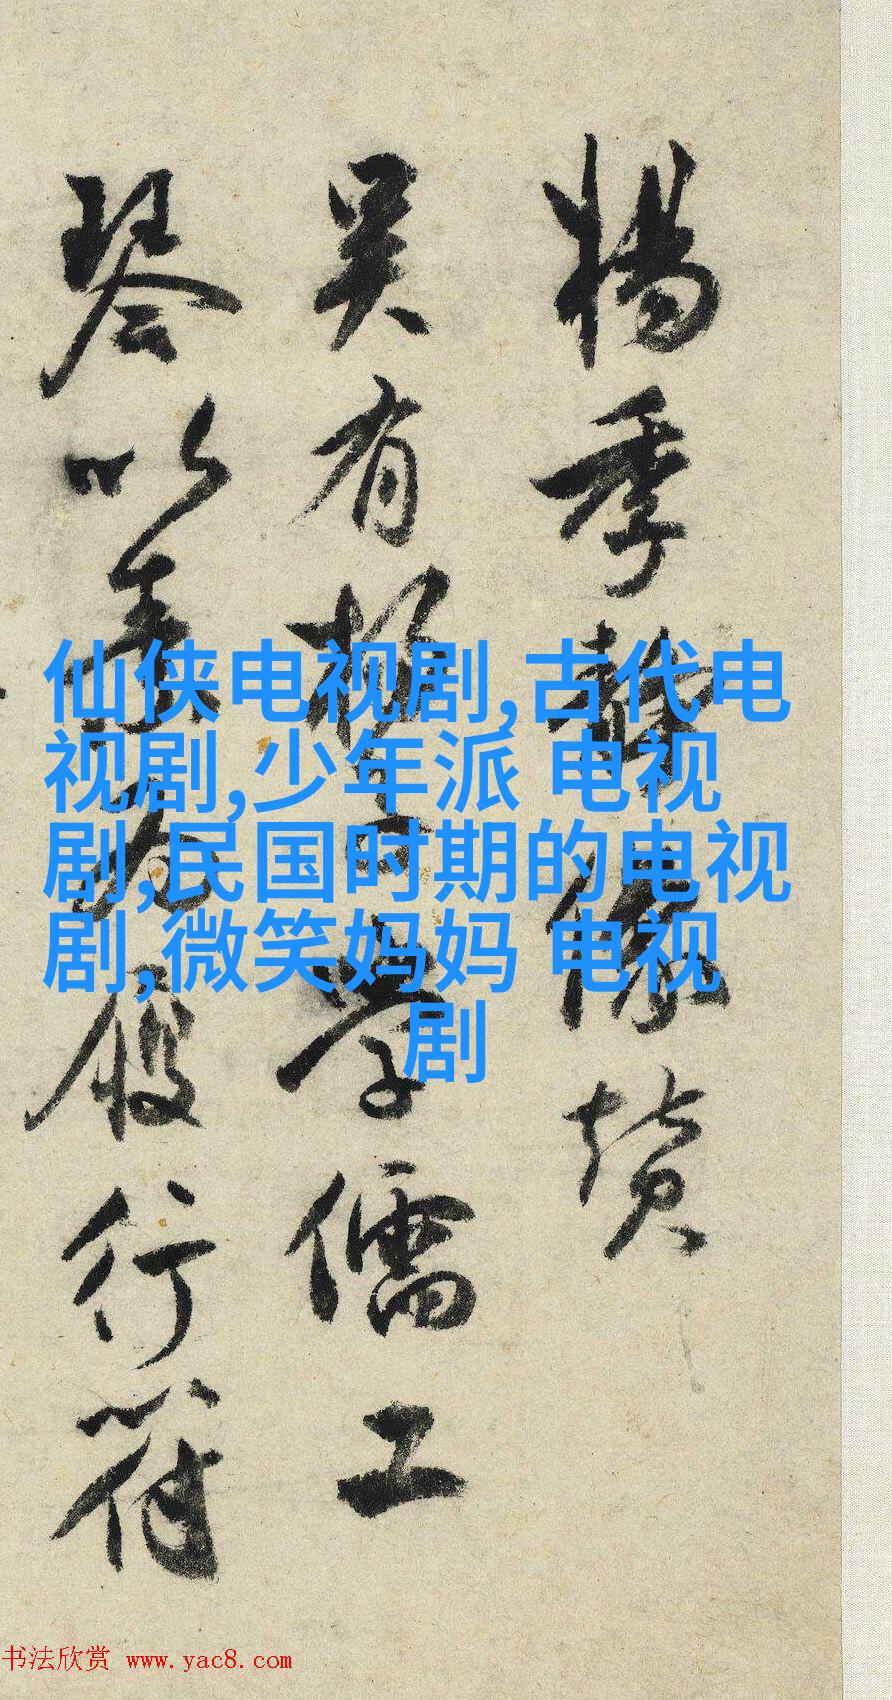 楊季静像贊
吴有楊子学儒工
琴以为履行符
仙侠电视剧,古代电
视剧,少年派 电视
剧,民国时期的电视
剧,微笑妈妈 电视
剧
书法欣赏 www.yac8.com